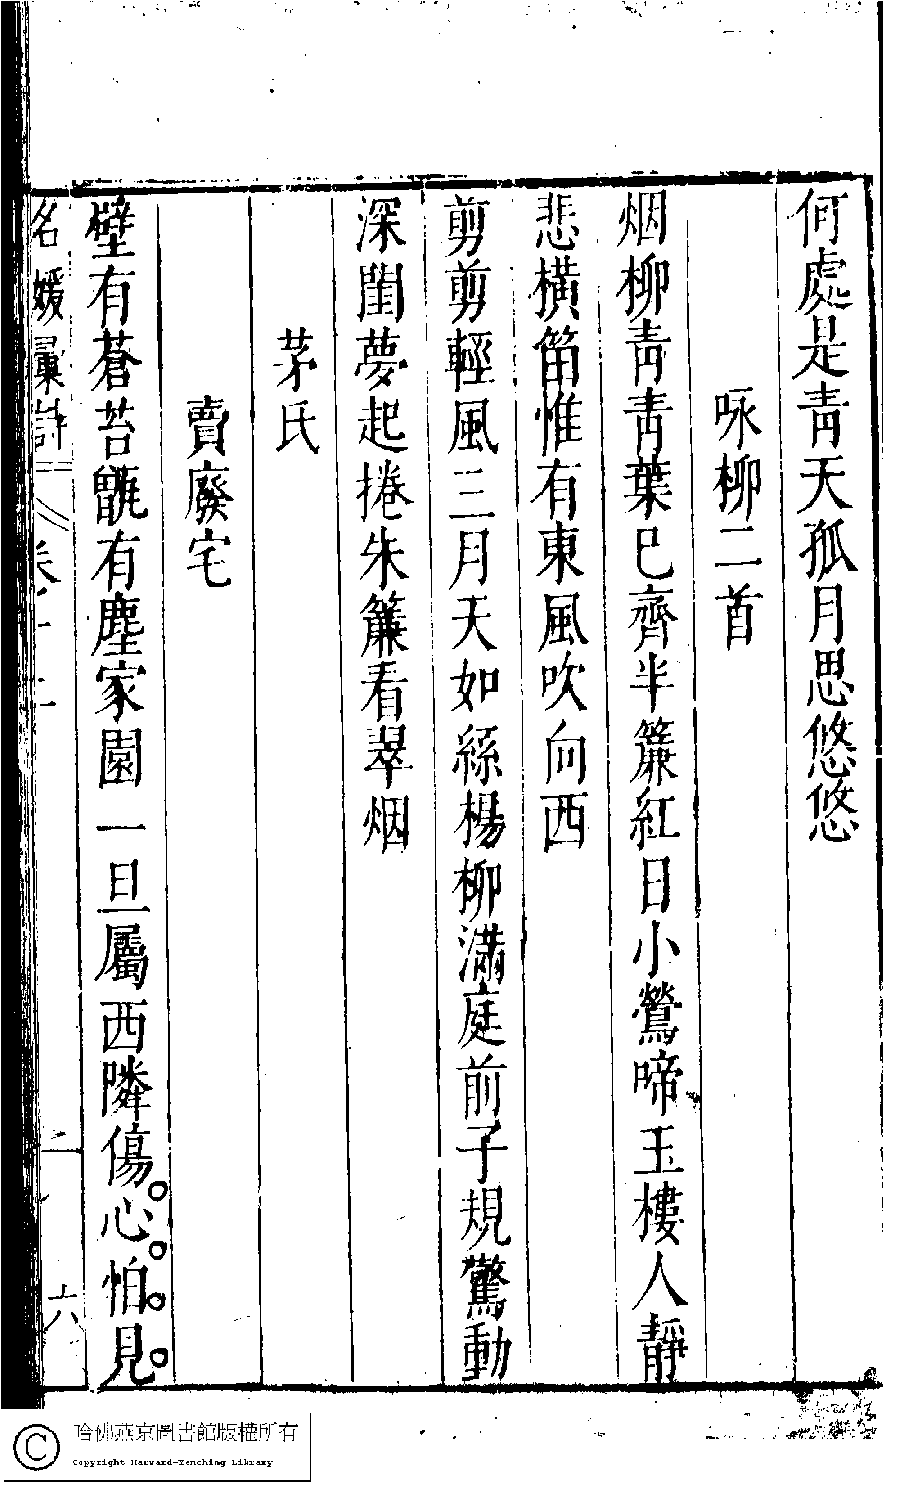 何處是靑天孤月思悠悠
咏柳二首
烟柳靑靑葉已齊半簾紅日小鶯啼玉樓人靜
悲橫笛惟有東風吹向西
剪剪輕風三月天如絲楊柳滿庭前子規驚動
深閨夢起捲朱簾看翠烟
茅氏
賣廢宅
壁有蒼苔甑有塵家園一旦屬西隣傷心怕見
名媛彙詩
卷十二
二十六
哈佛燕京圖書館版權所有
Copyright Harvard-Yenching Library